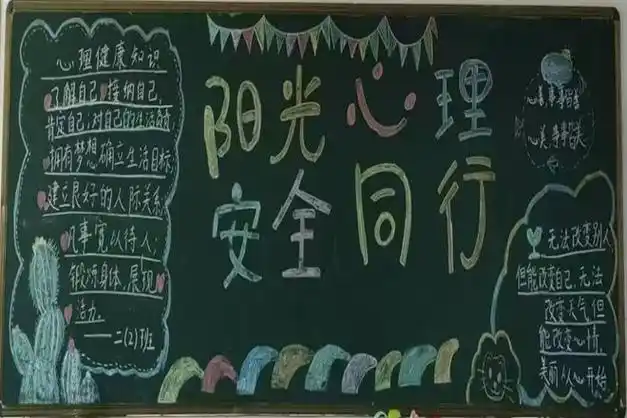 心理健康知识
了解自己,接纳自己,
肯定自己;对自己的生活
拥有梦想,确立生活目标;
建立良好的人际关系
凡事宽以待人;
锻炼身体,展现
活力。
——二(2)班
阳光心理
安全同行
心喜,事事皆喜
心美,事事皆美
无法改变别人
但能改变自己,无法
改变天气,但
能改变心情,
美丽从心开始